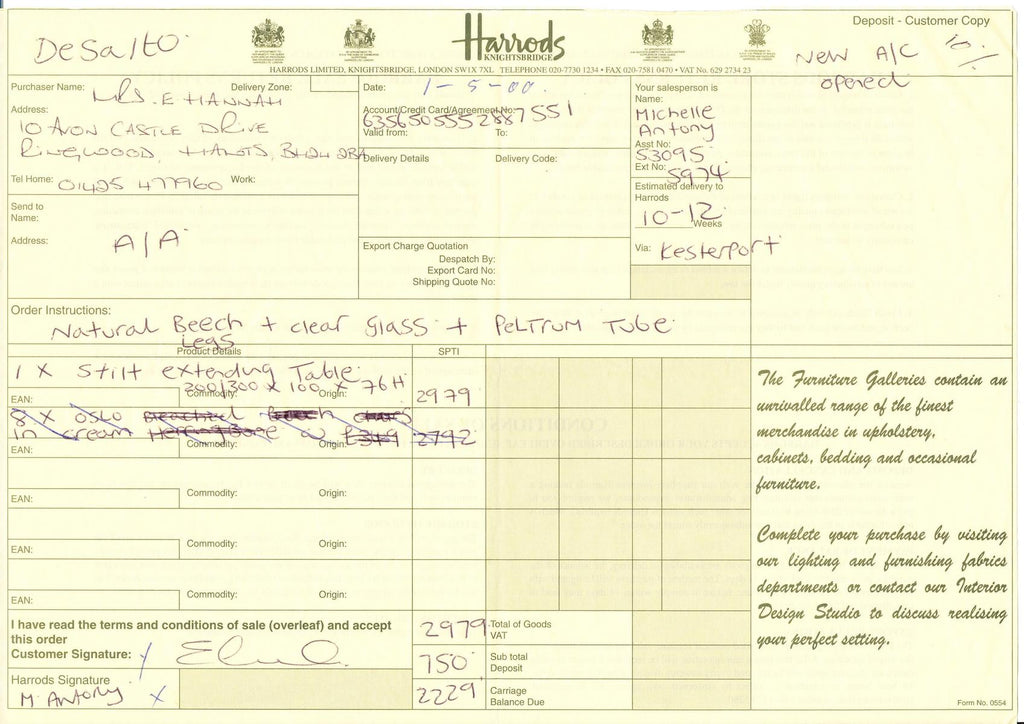 Deposit - Customer Copy
DeSalto
Harrods
KNIGHTSBRIDGE
HARRODS LIMITED, KNIGHTSBRIDGE, LONDON SW1X 7XL TELEPHONE 020-7730 1234 • FAX 020-7581 0470 • VAT No. 629 2734 23
NEW A/C 10%
opened
Purchaser Name: MRS. E HANNAH Delivery Zone:
Address:
10 AVON CASTLE DRIVE
RINGWOOD, HANTS, BH24 2BA
Tel Home: 01425 477960 Work:
Send to
Name:
Address: A/A
Date: 1-5-00
Account/Credit Card/Agreement No:
6356505552887551
Valid from: To:
Delivery Details Delivery Code:
Export Charge Quotation
Despatch By:
Export Card No:
Shipping Quote No:
Your salesperson is
Name:
Michelle
Antony
Asst No:
53095
Ext No: 5974
Estimated delivery to
Harrods
10-12
Weeks
Via: Kesterport
Order Instructions:
Natural Beech + clear Glass + PELTRUM TUBE
Legs
Product Details SPTI
1 x Stilt extending Table
200/300 x 100 x 76H 2979
EAN: Commodity: Origin:
8 x OSLO
in cream 2792
EAN: Commodity: Origin:
EAN: Commodity: Origin:
EAN: Commodity: Origin:
EAN: Commodity: Origin:
I have read the terms and conditions of sale (overleaf) and accept
this order
Customer Signature:
Harrods Signature
M Antony X
2979 Total of Goods
VAT
750 Sub total
Deposit
2229 Carriage
Balance Due
The Furniture Galleries contain an
unrivalled range of the finest
merchandise in upholstery,
cabinets, bedding and occasional
furniture.
Complete your purchase by visiting
our lighting and furnishing fabrics
departments or contact our Interior
Design Studio to discuss realising
your perfect setting.
Form No. 0554